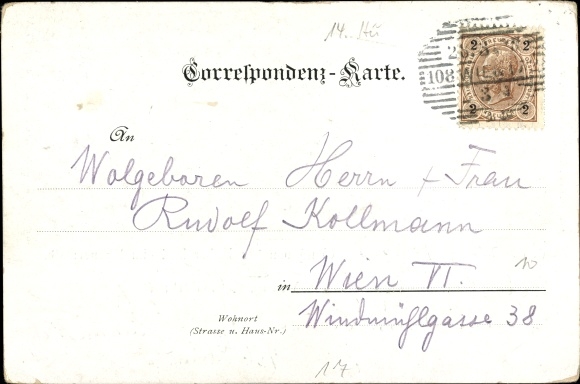 14.
2 2
108
Correspondenz-Karte.
2 2
An
Wolgeboren Herrn + Frau
Rudolf Kollmann
in Wien VI. 10
Wohnort
(Strasse u. Haus-Nr.) Windmühlgasse 38
17